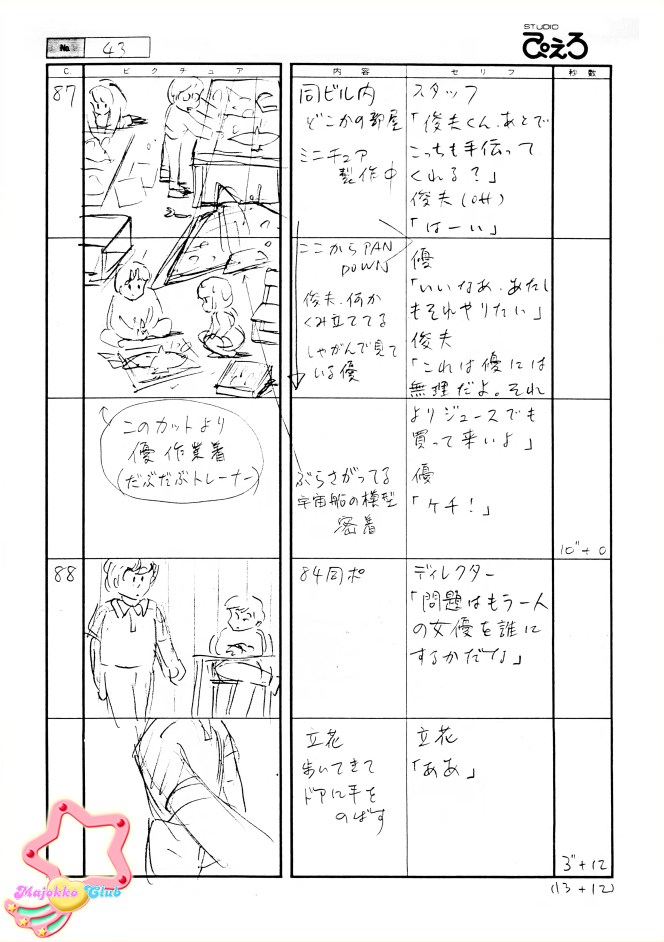 STUDIO
ぴえろ
No. 43
C.
ピクチュア
内容
セリフ
秒数
87
同ビル内
どこかの部屋
ミニチュア
製作中
スタッフ
「俊夫くん、あとで
こっちも手伝って
くれる?」
俊夫(off)
「はーい」
ここからPAN
DOWN
俊夫、何か
くみ立ててる
しゃがんで見て
いる優
優
「いいなあ、あたし
もそれやりたい」
俊夫
「これは優には
無理だよ。それ
よりジュースでも
買って来いよ」
優
「ケチ!」
このカットより
優 作業着
(だぶだぶトレーナー)
ぶらさがってる
宇宙船の模型
密着
10"+0
88
84同ポ
ディレクター
「問題はもう一人
の女優を誰に
するかだな」
立花
歩いてきて
ドアに手を
のばす
立花
「ああ」
3"+12
(13+12)
Majokko Club